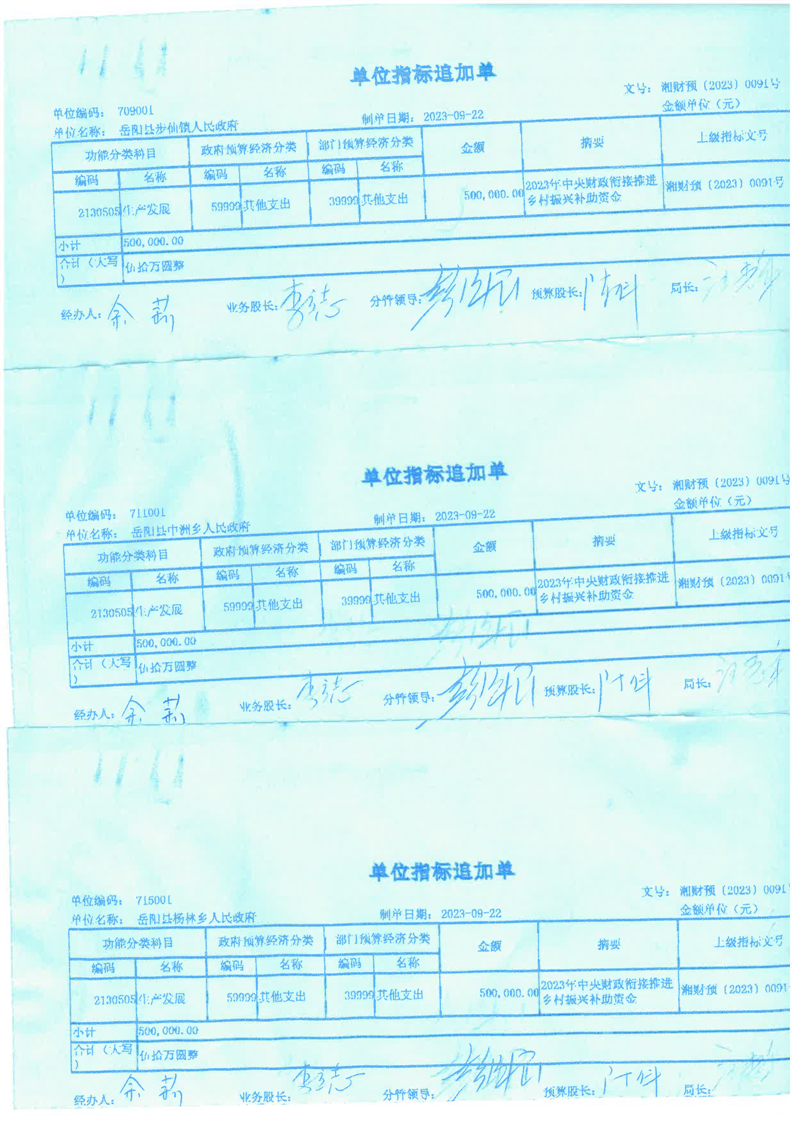 单位指标追加单
文号: 湘财预〔2023〕0091号
单位编码: 709001
金额单位（元）
单位名称: 岳阳县步仙镇人民政府 制单日期: 2023-09-22
功能分类科目 政府预算经济分类 部门预算经济分类 金额 摘要 上级指标文号
编码 名称 编码 名称 编码 名称
2130505 生产发展 59999 其他支出 39999 其他支出 500,000.00 2023年中央财政衔接推进乡村振兴补助资金 湘财预〔2023〕0091号
小计 500,000.00
合计（大写） 伍拾万圆整
经办人: 余莉 业务股长: 分管领导: 预算股长: 局长:
单位指标追加单
文号: 湘财预〔2023〕0091号
单位编码: 711001
金额单位（元）
单位名称: 岳阳县中洲乡人民政府 制单日期: 2023-09-22
功能分类科目 政府预算经济分类 部门预算经济分类 金额 摘要 上级指标文号
编码 名称 编码 名称 编码 名称
2130505 生产发展 59999 其他支出 39999 其他支出 500,000.00 2023年中央财政衔接推进乡村振兴补助资金 湘财预〔2023〕0091号
小计 500,000.00
合计（大写） 伍拾万圆整
经办人: 余莉 业务股长: 分管领导: 预算股长: 局长:
单位指标追加单
文号: 湘财预〔2023〕0091号
单位编码: 715001
金额单位（元）
单位名称: 岳阳县杨林乡人民政府 制单日期: 2023-09-22
功能分类科目 政府预算经济分类 部门预算经济分类 金额 摘要 上级指标文号
编码 名称 编码 名称 编码 名称
2130505 生产发展 59999 其他支出 39999 其他支出 500,000.00 2023年中央财政衔接推进乡村振兴补助资金 湘财预〔2023〕0091
小计 500,000.00
合计（大写） 伍拾万圆整
经办人: 余莉 业务股长: 分管领导: 预算股长: 局长: